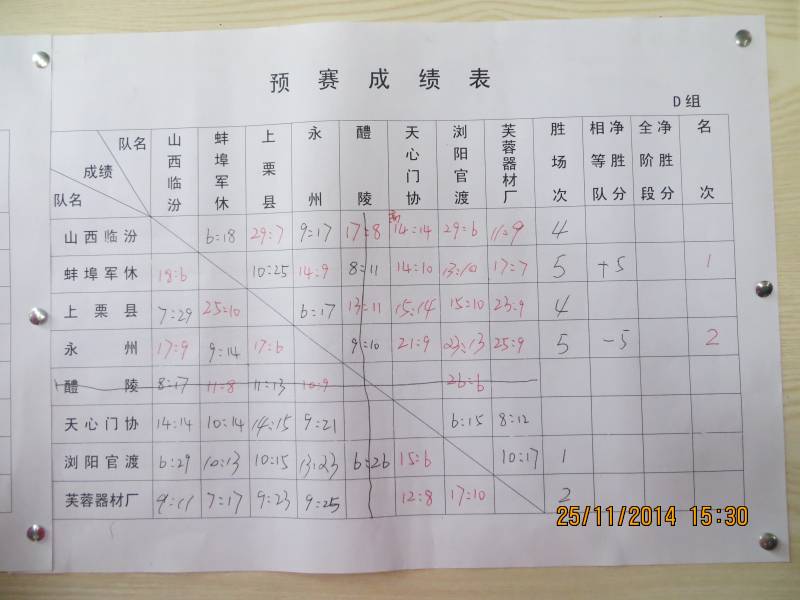 预赛成绩表
D组
队名 成绩 队名 山西临汾 蚌埠军休 上栗县 永州 醴陵 天心门协 浏阳官渡 芙蓉器材厂 胜场次 相等队净胜分 全阶段净胜分 名次
山西临汾 6:18 29:7 9:17 17:8 14:14 29:6 11:9 4
蚌埠军休 18:6 10:25 14:9 8:11 14:10 13:10 17:7 5 +5 1
上栗县 7:29 25:10 6:17 13:11 15:14 15:10 23:9 4
永州 17:9 9:14 17:6 9:10 21:9 23:13 25:9 5 -5 2
醴陵 8:17 11:8 11:13 10:9 26:6
天心门协 14:14 10:14 14:15 9:21 6:15 8:12
浏阳官渡 6:29 10:13 10:15 13:23 6:26 15:6 10:17 1
芙蓉器材厂 9:11 7:17 9:23 9:25 12:8 17:10 2
25/11/2014 15:30